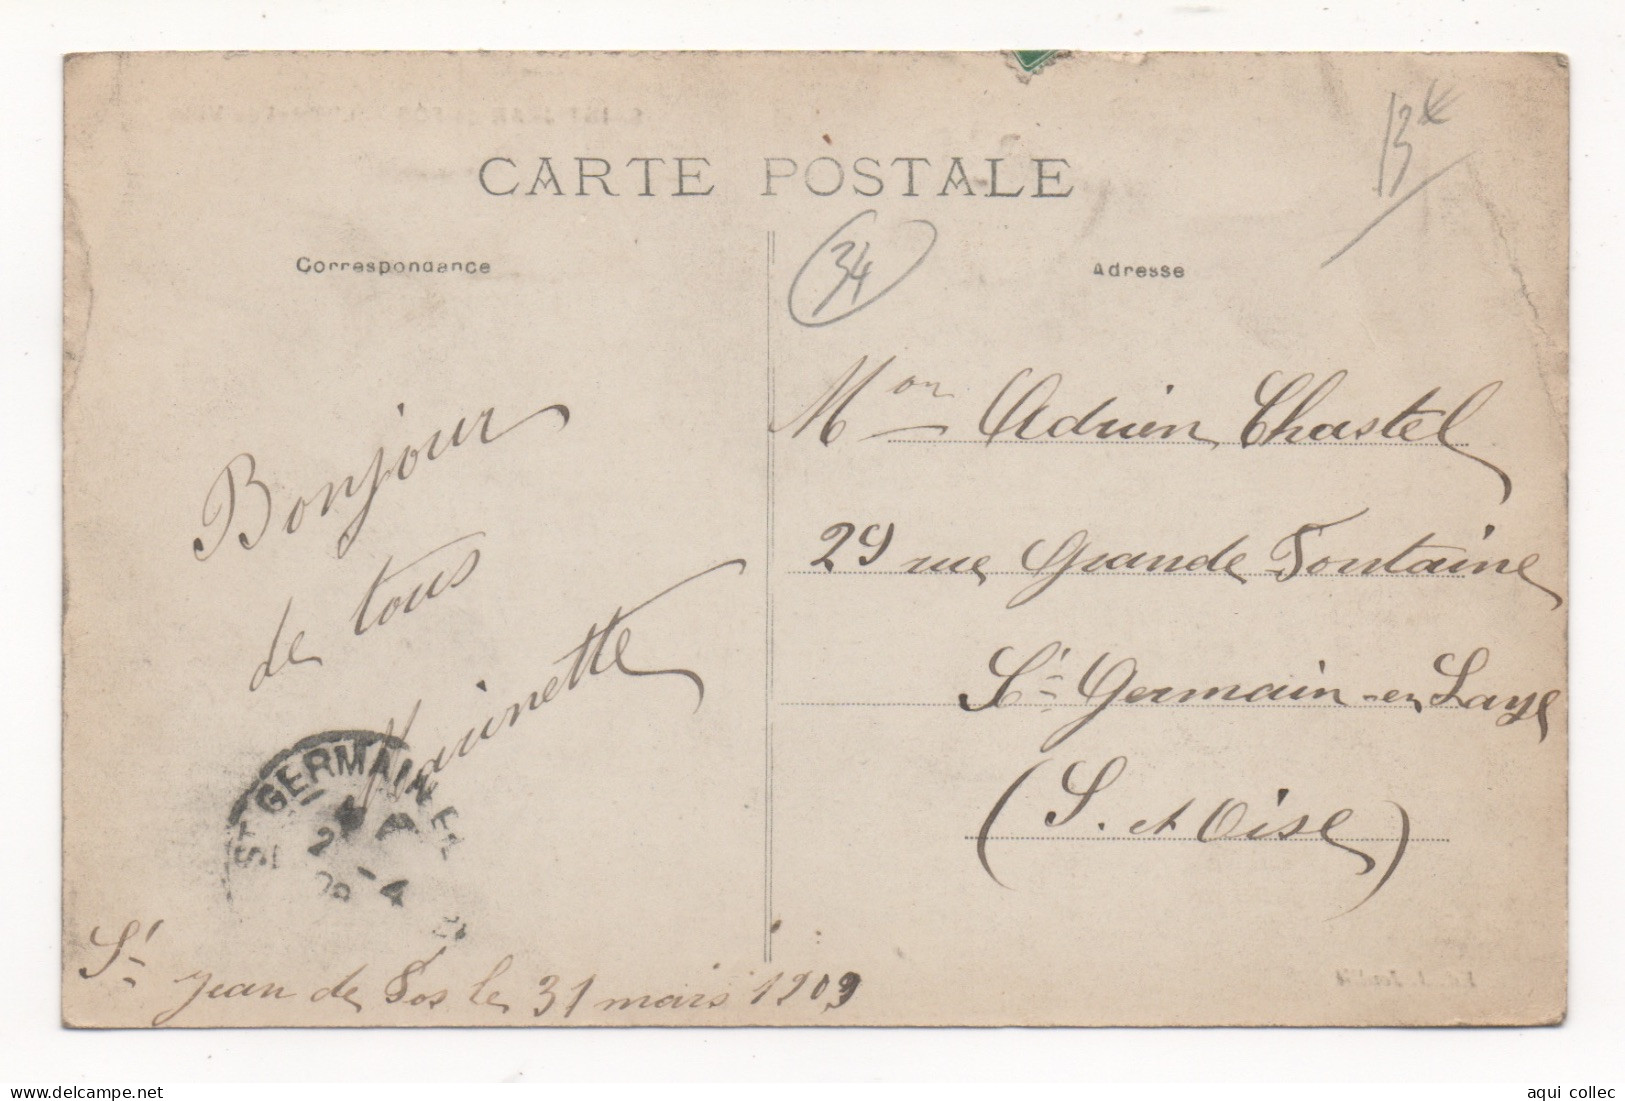 CARTE POSTALE
13€
34
Correspondance
Adresse
Bonjour
de tous
Naninette
Mon Adrien Chastel
29 rue Grande Fontaine
St Germain-en Laye
(S. et Oise)
ST GERMAIN EN
-4
St Jean de Fos le 31 mars 1909
aqui collec